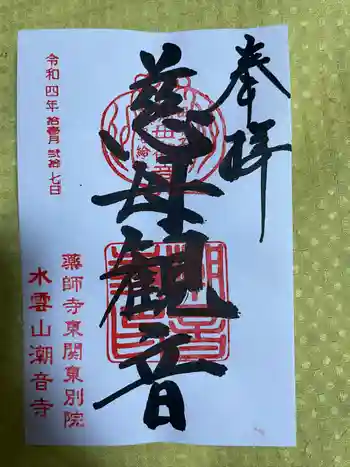 奉拝
慈母観音
令和四年拾壱月弐拾七日
薬師寺東関東別院
水雲山潮音寺